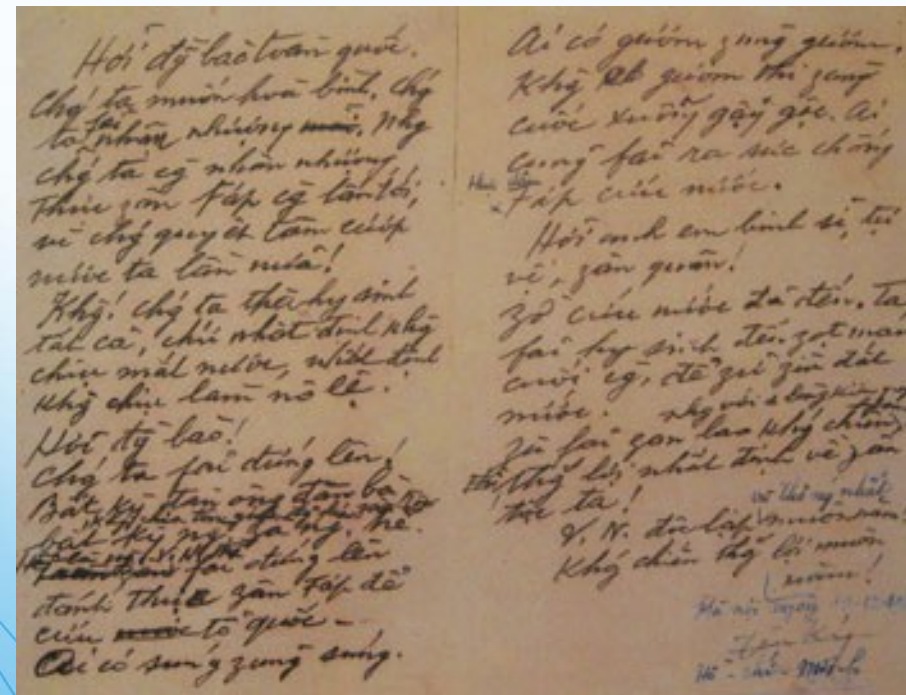 Hỡi đ̃g bào toàn quốc.
Chg' ta muốn hoà bình, chg'
ta fải nhân nhượng. Nhg
chg' ta cg nhân nhượng,
thực zân Fáp cg lấn tới,
vì chg' quyết tâm cướp
nước ta lần nữa!
Khg! Chg' ta thà hy sinh
tất cả, chứ nhất định khg
chịu mất nước, nhất định
khg chịu làm nô lệ.
Hỡi đ̃g bào!
Chg' ta fải đứng lên!
Bất kỳ đàn ông, đàn bà,
bất kỳ ng' già ng' trẻ.
fải đứng lên
đánh thực zân Fáp để
cứu tổ quốc -
Ai có súng zùng súng.
Ai có gươm zùng gươm.
Khg có gươm thì zùng
cuốc xuổng gậy gộc. Ai
cũng fải ra sức chống
Fáp cứu nước.
Hỡi anh em binh sĩ, tự
vệ, zân quân!
Zờ cứu nước đã đến. Ta
fải hy sinh đến zọt máu
cuối cg, để zữ zìn đất
nước.
Zù fải zan lao khg' chiến
thì thg' lợi nhất định về zân
tộc ta!
và thống nhất
V.N. độc lập muôn năm!
Khg' chiến thg' lợi muôn
năm!
Hà nội ngày
Hồ-chí-Minh